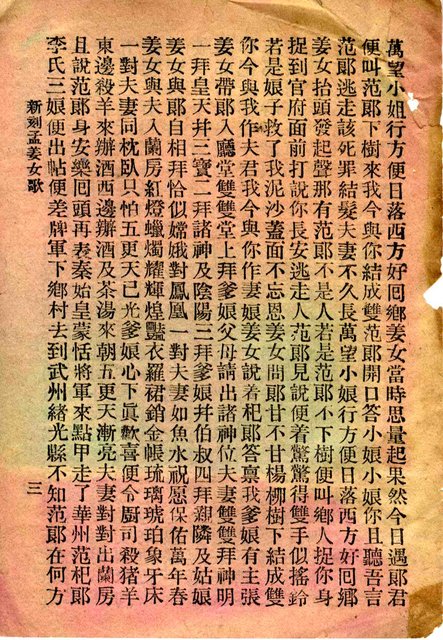 萬望小姐行方便日落西方好囘鄉姜女當時思量起果然今日遇郎君
便叫范郎下樹來我今與你結成雙范郎開口答小娘小娘你且聽吾言
范郎逃走該死罪結髮夫妻不久長萬望小娘行方便日落西方好囘鄉
姜女抬頭發起聲那有范郎不是人若是范郎不下樹便叫鄉人捉你身
捉到官府面前打說你長安逃走人范郎見說便着驚驚得雙手似搖鈴
若是娘子救了我泥沙蓋面不忘恩姜女問郎甘不甘楊柳樹下結成雙
你今與我作夫君我今與你作妻娘姜女說着杞郎答禀我爹娘有主張
姜女帶郎入廳堂雙雙堂上拜爹娘父母請出諸神位夫妻雙雙拜神明
一拜皇天幷三寶二拜諸神及陰陽三拜爹娘幷伯叔四拜鄰隣及姑娘
姜女與郎自相拜恰似嫦娥對鳳凰一對夫妻如魚水祝愿保佑萬年春
姜女與夫入蘭房紅燈蠟燭耀輝煌豔衣羅裙銷金帳琉璃琥珀象牙床
一對夫妻同枕臥只怕五更天已光爹娘心下眞歡喜便令厨司殺猪羊
東邊殺羊來辦酒西邊辦酒及茶湯來朝五更天漸亮夫妻對對出蘭房
且說范郎身安樂囘頭再表秦始皇蒙恬將軍來點甲走了華州范杞郎
李氏三娘便出帖便差牌軍下鄉村去到武州緒光縣不知范郎在何方
新刻孟姜女歌
三